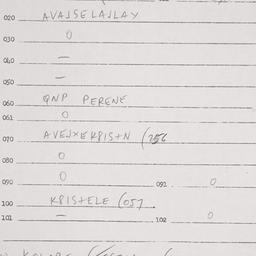 020 AVAJSELAJLAY
030 0
040 —
050 —
060 QNP PERENE
061 0
070 AVEJXEKRIS+N (256
080 0
090 0 091 0
100 KRIS+ELE (057
101 — 102 0